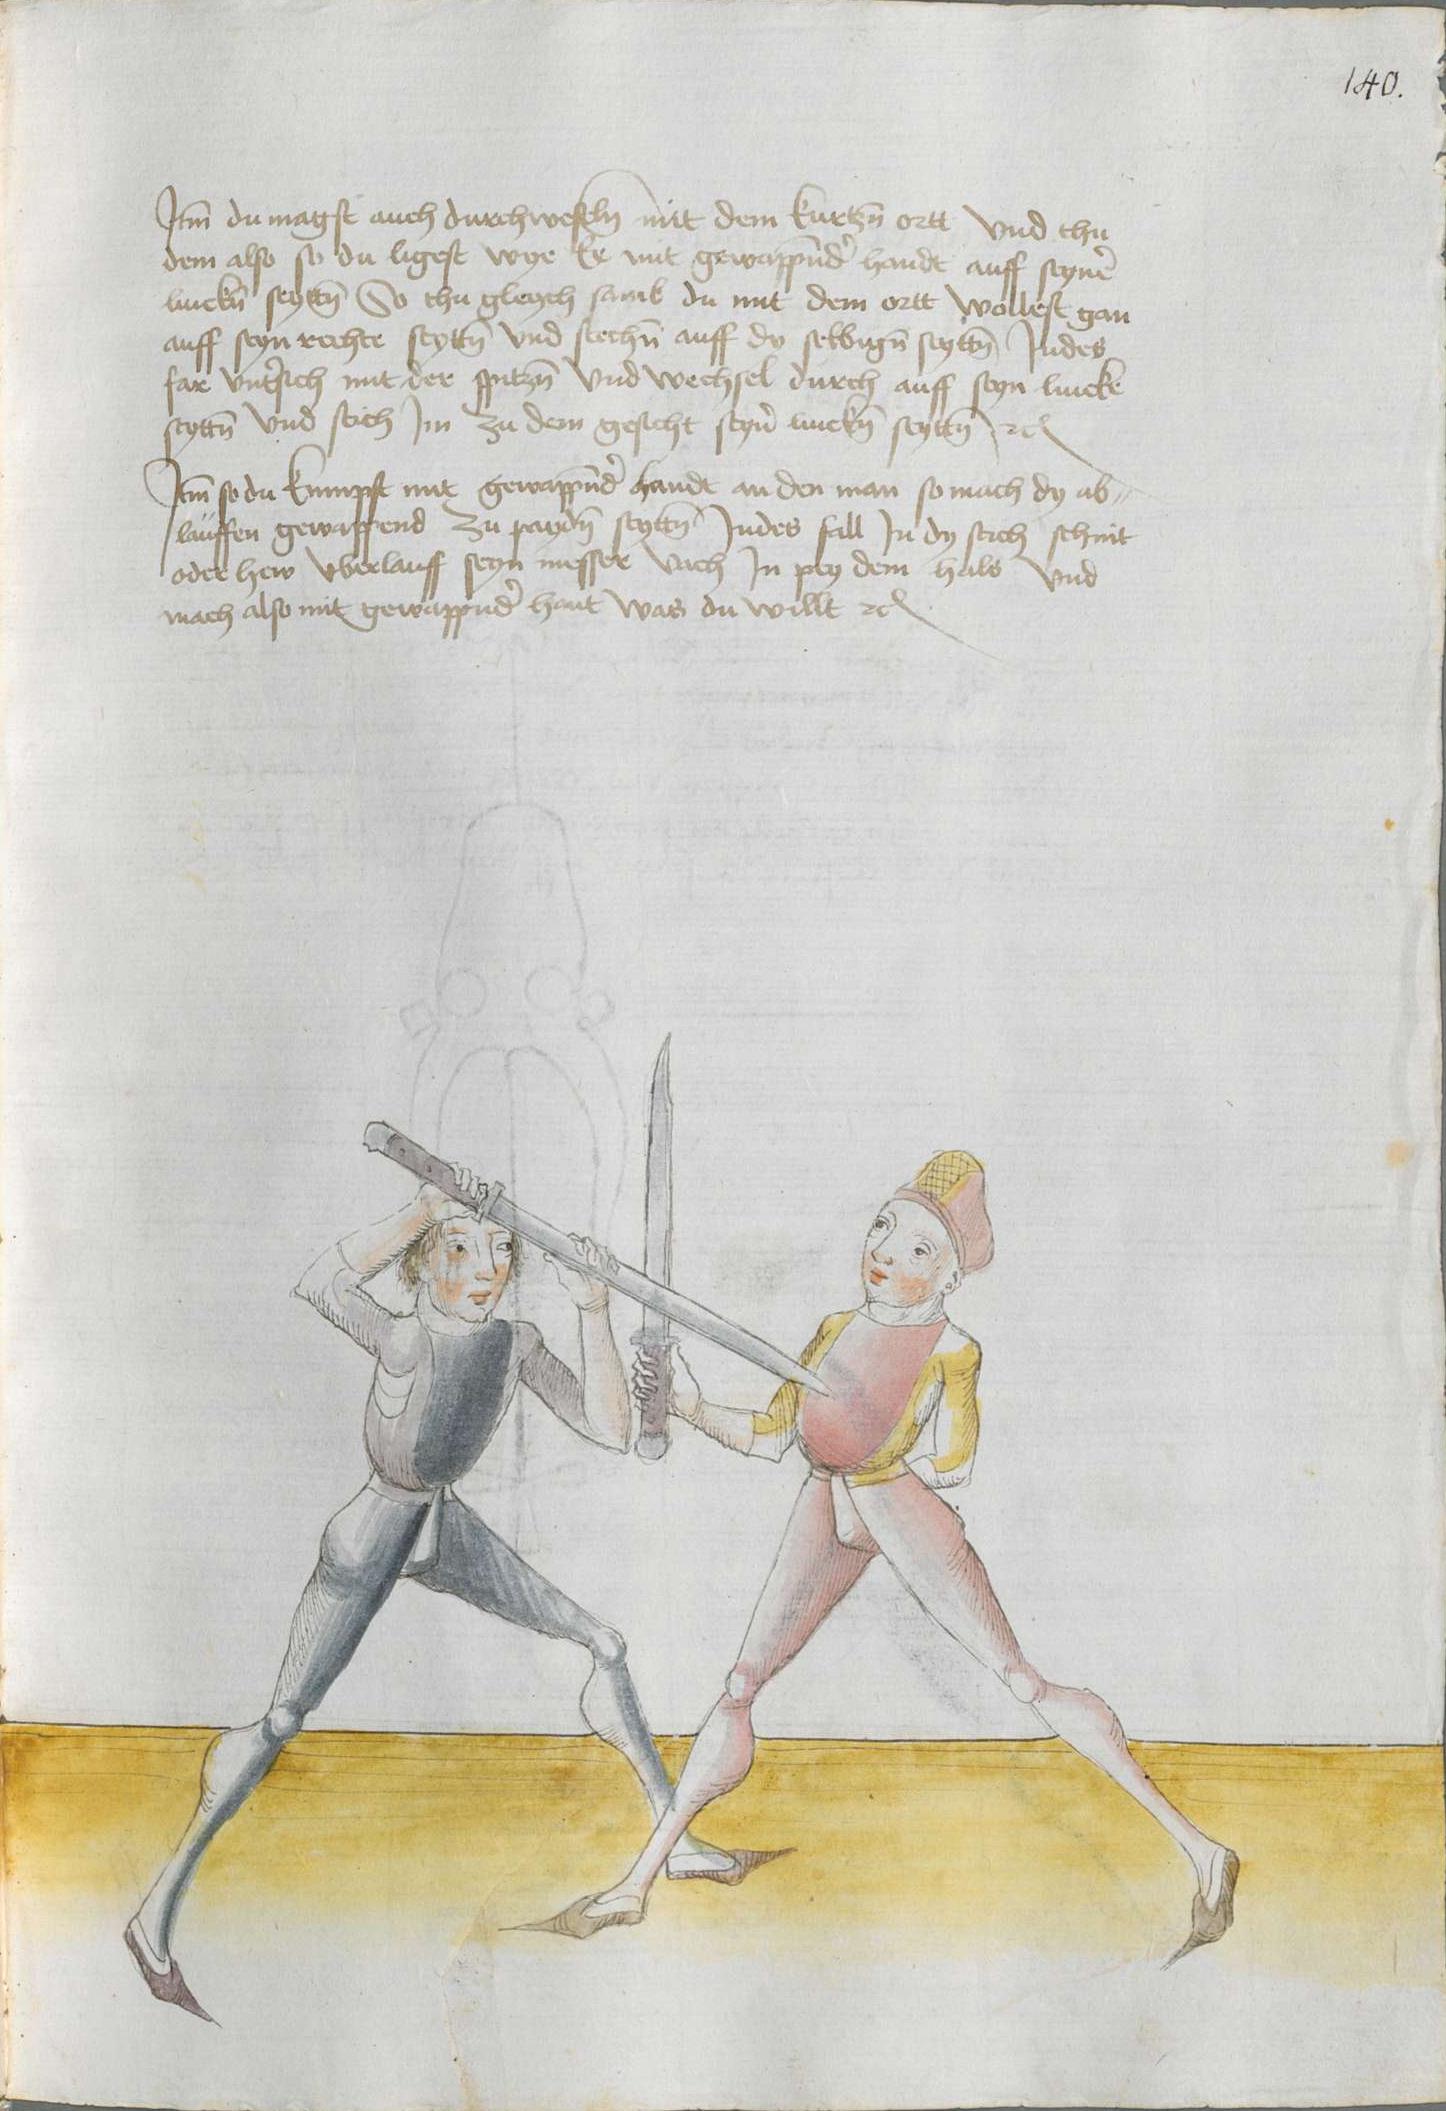 140.
Itm̄ du magst auch durchwechseln mit dem kurtzn̄ ortt Vnd thu
dem also so du ligest wye Er mit gewappn̄der handt auff seyner
lincken̄ seyttn̄ So thu gleych samb du mit dem ortt wollest gan
auff seyn rechte seyttn̄ Vnd stechn̄ auff dy selbign̄ seyttn̄ Indes
far vntersich mit der spitzn̄ Vnd wechsel durch auff seyn lincke
seyttn̄ Vnd stich Im zu dem gesicht seyner linckn̄ seyttn̄ rc
Itm̄ so du kumpst mit gewappn̄der handt an den man so mach dy ab=
lauffen gewappend zu paydn̄ seyttn̄ Indes fall In dy stich schnit
oder hew vberlauff seyn messer Vach In pey dem hals Vnd
mach also mit gewappnder hant was du willt rc